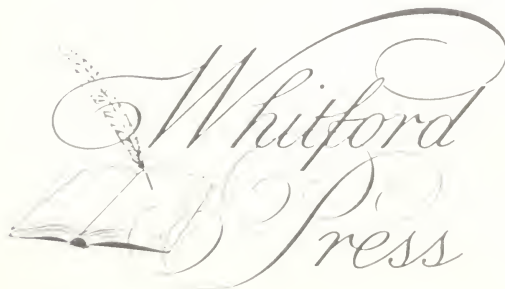 Whitford
Press